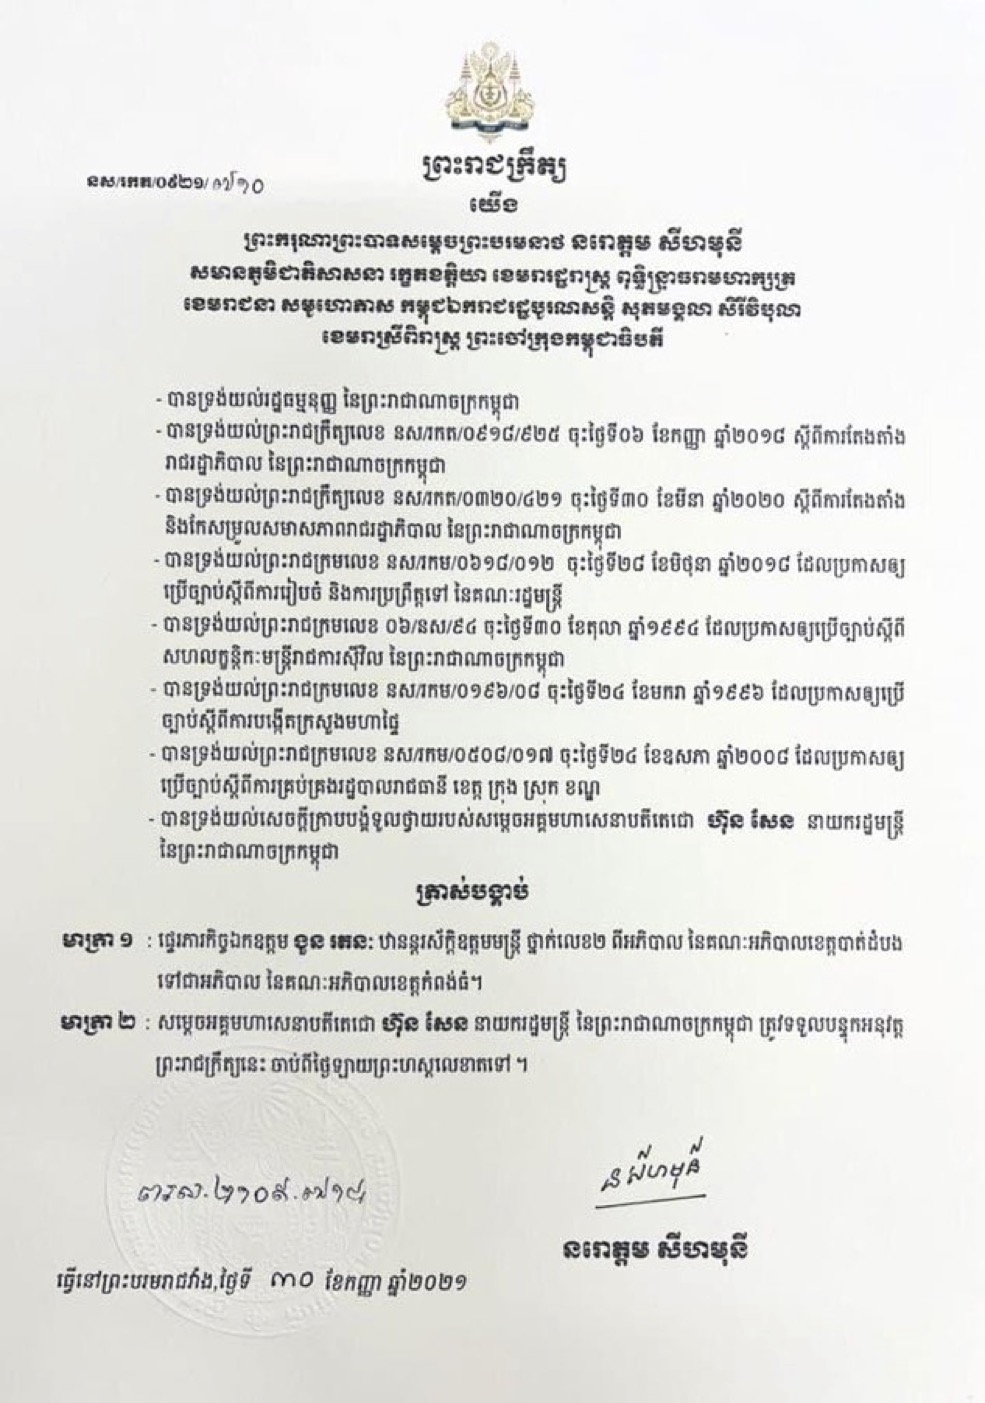 ព្រះរាជក្រឹត្យ
នស/រកត/០៩២១/៧១០
យើង
ព្រះករុណាព្រះបាទសម្តេចព្រះបរមនាថ នរោត្តម សីហមុនី
សមានភូមិជាតិសាសនា រក្ខតខត្តិយា ខេមរារដ្ឋរាស្ត្រ ពុទ្ធិន្ទ្រាធរាមហាក្សត្រ
ខេមរាជនា សមូហោភាស កម្ពុជឯករាជរដ្ឋបូរណសន្តិ សុភមង្គលា សិរីវិបុលា
ខេមរាស្រីពិរាស្ត្រ ព្រះចៅក្រុងកម្ពុជាធិបតី
- បានទ្រង់យល់រដ្ឋធម្មនុញ្ញ នៃព្រះរាជាណាចក្រកម្ពុជា
- បានទ្រង់យល់ព្រះរាជក្រឹត្យលេខ នស/រកត/០៩១៨/៩២៥ ចុះថ្ងៃទី០៦ ខែកញ្ញា ឆ្នាំ២០១៨ ស្តីពីការតែងតាំង
រាជរដ្ឋាភិបាល នៃព្រះរាជាណាចក្រកម្ពុជា
- បានទ្រង់យល់ព្រះរាជក្រឹត្យលេខ នស/រកត/០៣២០/៤២១ ចុះថ្ងៃទី៣០ ខែមីនា ឆ្នាំ២០២០ ស្តីពីការតែងតាំង
និងកែសម្រួលសមាសភាពរាជរដ្ឋាភិបាល នៃព្រះរាជាណាចក្រកម្ពុជា
- បានទ្រង់យល់ព្រះរាជក្រមលេខ នស/រកម/០៦១៨/០១២ ចុះថ្ងៃទី២៨ ខែមិថុនា ឆ្នាំ២០១៨ ដែលប្រកាសឲ្យ
ប្រើច្បាប់ស្តីពីការរៀបចំ និងការប្រព្រឹត្តទៅ នៃគណៈរដ្ឋមន្ត្រី
- បានទ្រង់យល់ព្រះរាជក្រមលេខ ០៦/នស/៩៤ ចុះថ្ងៃទី៣០ ខែតុលា ឆ្នាំ១៩៩៤ ដែលប្រកាសឲ្យប្រើច្បាប់ស្តីពី
សហលក្ខន្តិកៈមន្ត្រីរាជការស៊ីវិល នៃព្រះរាជាណាចក្រកម្ពុជា
- បានទ្រង់យល់ព្រះរាជក្រមលេខ នស/រកម/០១៩៦/០៨ ចុះថ្ងៃទី២៤ ខែមករា ឆ្នាំ១៩៩៦ ដែលប្រកាសឲ្យប្រើ
ច្បាប់ស្តីពីការបង្កើតក្រសួងមហាផ្ទៃ
- បានទ្រង់យល់ព្រះរាជក្រមលេខ នស/រកម/០៥០៨/០១៧ ចុះថ្ងៃទី២៤ ខែឧសភា ឆ្នាំ២០០៨ ដែលប្រកាសឲ្យ
ប្រើច្បាប់ស្តីពីការគ្រប់គ្រងរដ្ឋបាលរាជធានី ខេត្ត ក្រុង ស្រុក ខណ្ឌ
- បានទ្រង់យល់សេចក្តីក្រាបបង្គំទូលថ្វាយរបស់សម្តេចអគ្គមហាសេនាបតីតេជោ ហ៊ុន សែន នាយករដ្ឋមន្ត្រី
នៃព្រះរាជាណាចក្រកម្ពុជា
ត្រាស់បង្គាប់
មាត្រា ១ : ផ្ទេរភារកិច្ចឯកឧត្តម ងួន រតនៈ ឋានន្តរស័ក្តិឧត្តមមន្ត្រី ថ្នាក់លេខ២ ពីអភិបាល នៃគណៈអភិបាលខេត្តបាត់ដំបង
ទៅជាអភិបាល នៃគណៈអភិបាលខេត្តកំពង់ធំ។
មាត្រា ២ : សម្តេចអគ្គមហាសេនាបតីតេជោ ហ៊ុន សែន នាយករដ្ឋមន្ត្រី នៃព្រះរាជាណាចក្រកម្ពុជា ត្រូវទទួលបន្ទុកអនុវត្ត
ព្រះរាជក្រឹត្យនេះ ចាប់ពីថ្ងៃឡាយព្រះហស្តលេខាតទៅ ។
ន សីហមុនី
ពរល.២១០៩.៧១៨
នរោត្តម សីហមុនី
ធ្វើនៅព្រះបរមរាជវាំង,ថ្ងៃទី ៣០ ខែកញ្ញា ឆ្នាំ២០២១